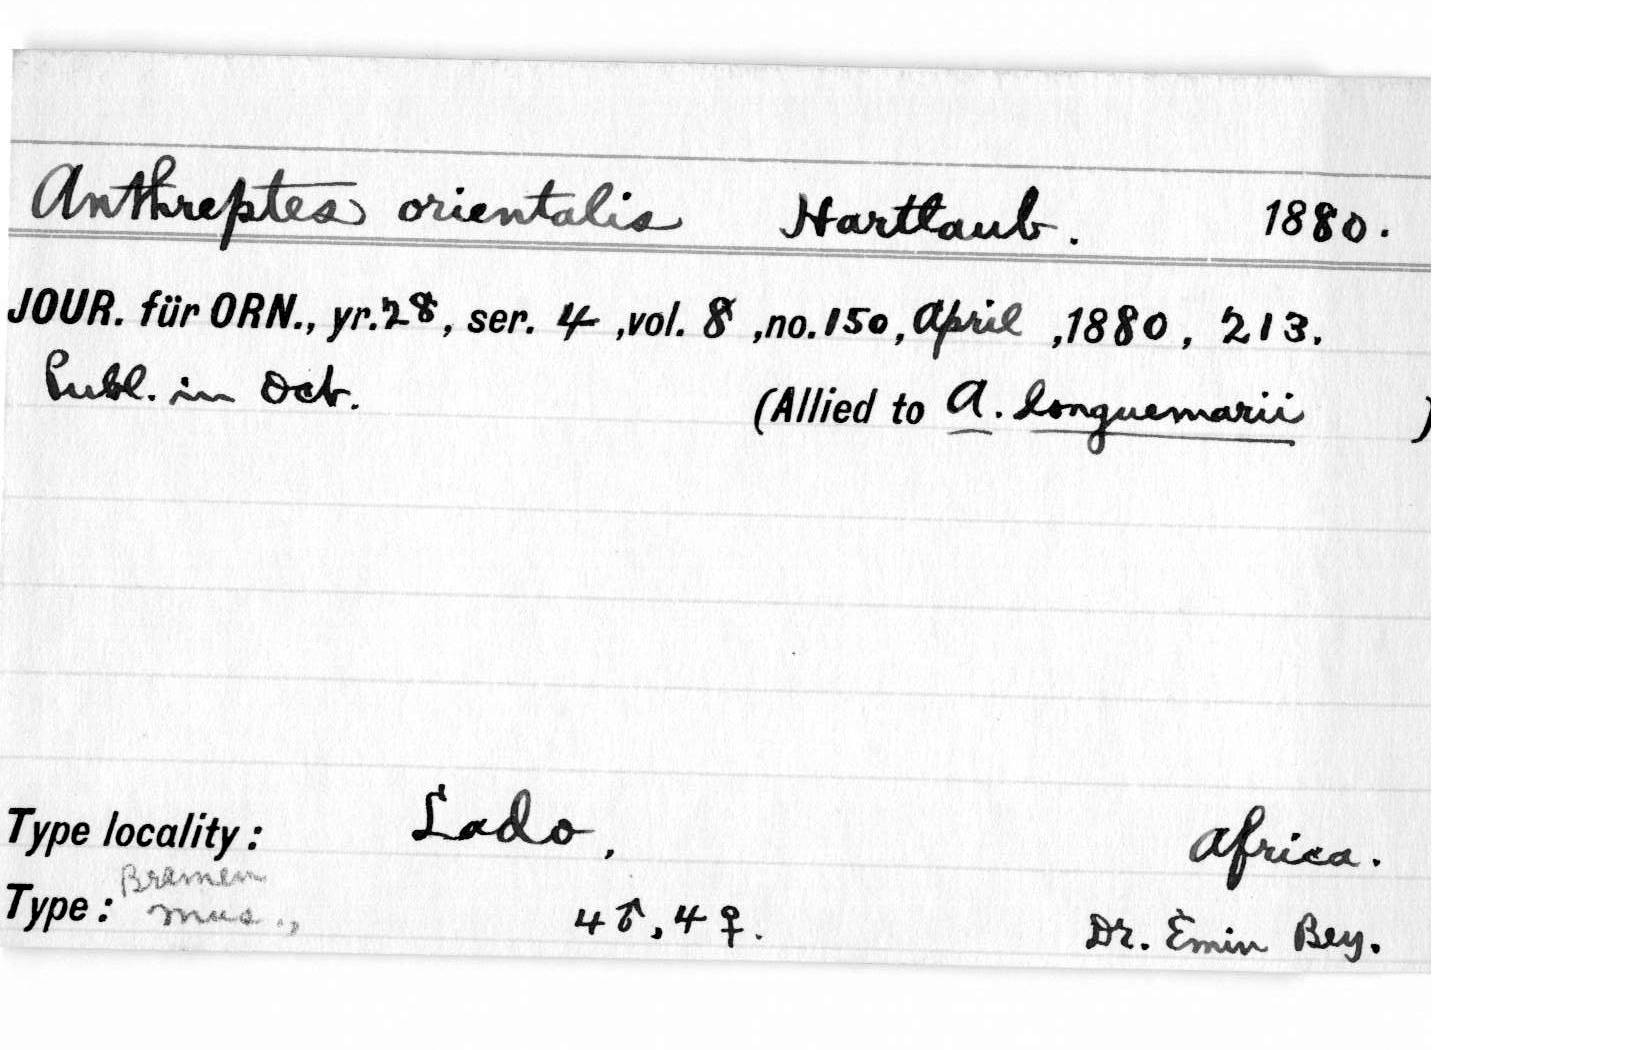 Anthreptes orientalis Hartlaub. 1880.
JOUR. für ORN., yr. 28, ser. 4, vol. 8, no. 150, April, 1880, 213.
Publ. in Oct. (Allied to A. longuemarii )
Type locality: Lado, Africa.
Type: Bremen mus., 4♂, 4♀. Dr. Emin Bey.